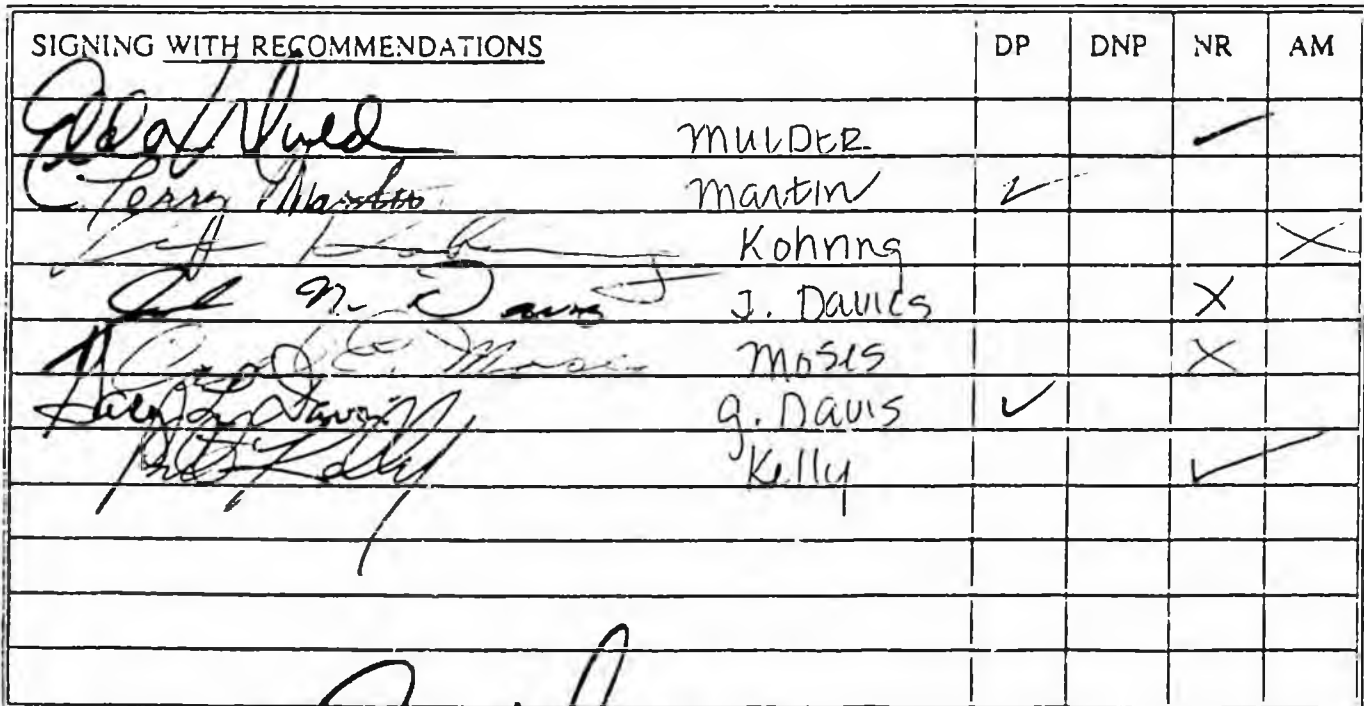 SIGNING WITH RECOMMENDATIONS DP DNP NR AM
MULDER ✓
C. Terry Martin Martin ✓
Kohring X
J. Davies X
Moses X
Gary L. Davis G. Davis ✓
Pete Kelly Kelly ✓